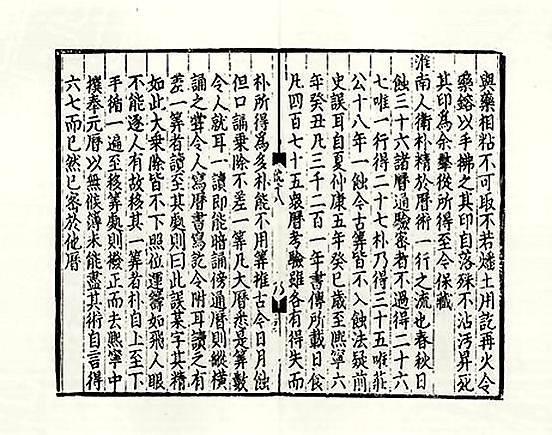 與藥相粘不可取不若燔土用訖再火令
藥鎔以手拂之其印自落殊不沾汚昇死
其印為余羣從所得至今保藏
淮南人衛朴精於曆術一行之流也春秋日
蝕三十六諸曆通驗密者不過得二十六
七唯一行得二十七朴乃得三十五唯莊
公十八年一蝕今古算皆不入蝕法疑前
史誤耳自夏仲康五年癸巳歳至熙寧六
年癸丑凡三千二百一年書傳所載日食
凡四百七十五衆曆考驗雖各有得失而
朴所得為多朴能不用算推古今日月蝕
但口誦乗除不差一算凡大曆悉是算數
令人就耳一讀即能暗誦傍通曆則縱横
誦之嘗令人寫曆書寫訖令附耳讀之有
差一算者讀至其處則曰此誤某字其精
如此大乗除皆不下照位運籌如飛人眼
不能逐人有故移其一算者朴自上至下
手循一遍至移算處則撥正而去熙寧中
撰奉元曆以無候簿未能盡其術自言得
六七而已然已密於他曆